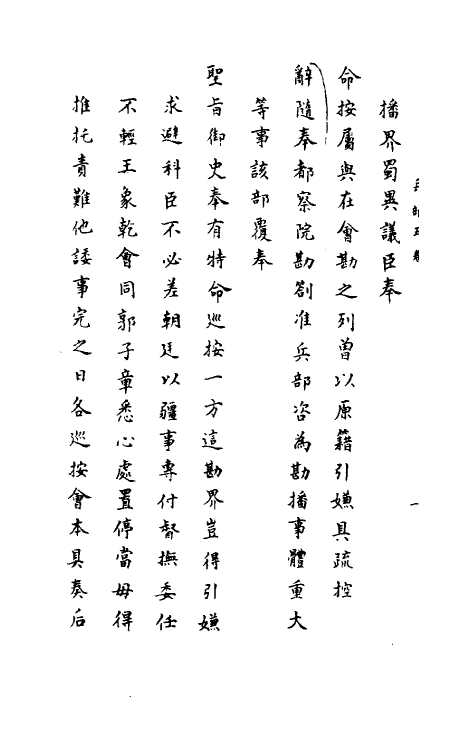 播界蜀異議臣奉
命按屬與在會勘之列曾以原籍引嫌具疏控
辭隨奉都察院勘劄准兵部咨為勘播事體重大
等事該部覆奉
聖旨御史奉有特命巡按一方這勘界豈得引嫌
求避科臣不必差朝廷以疆事專付督撫委任
不輕王象乾會同郭子章悉心處置停當毋得
推托責難他諉事完之日各巡按會本具奏后